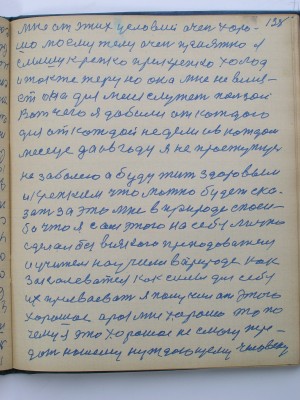 мне от этих условий очен хоро- 138
шо моему телу очен приятно я
слышу крепко природно холод
и также жару но она мне не влия-
ет она для меня служет ползой
Вот чего я добился от каждого
дня от каждой недели и в каждом
месеце да в году я не простужус
не заболею а буду жит здоровым
и крепким что можно будет ска-
зат за это мне в природе спаси-
бо что я сам этого на себе лично
сделался всякого преподователя
и учителя научили в природе как
закаляватся как силы для себя
их приваеват я получил от этого
хорошое про мне хорошо то по
чему я это хорошое не смогу пре-
дат нашему нуждающему человеку